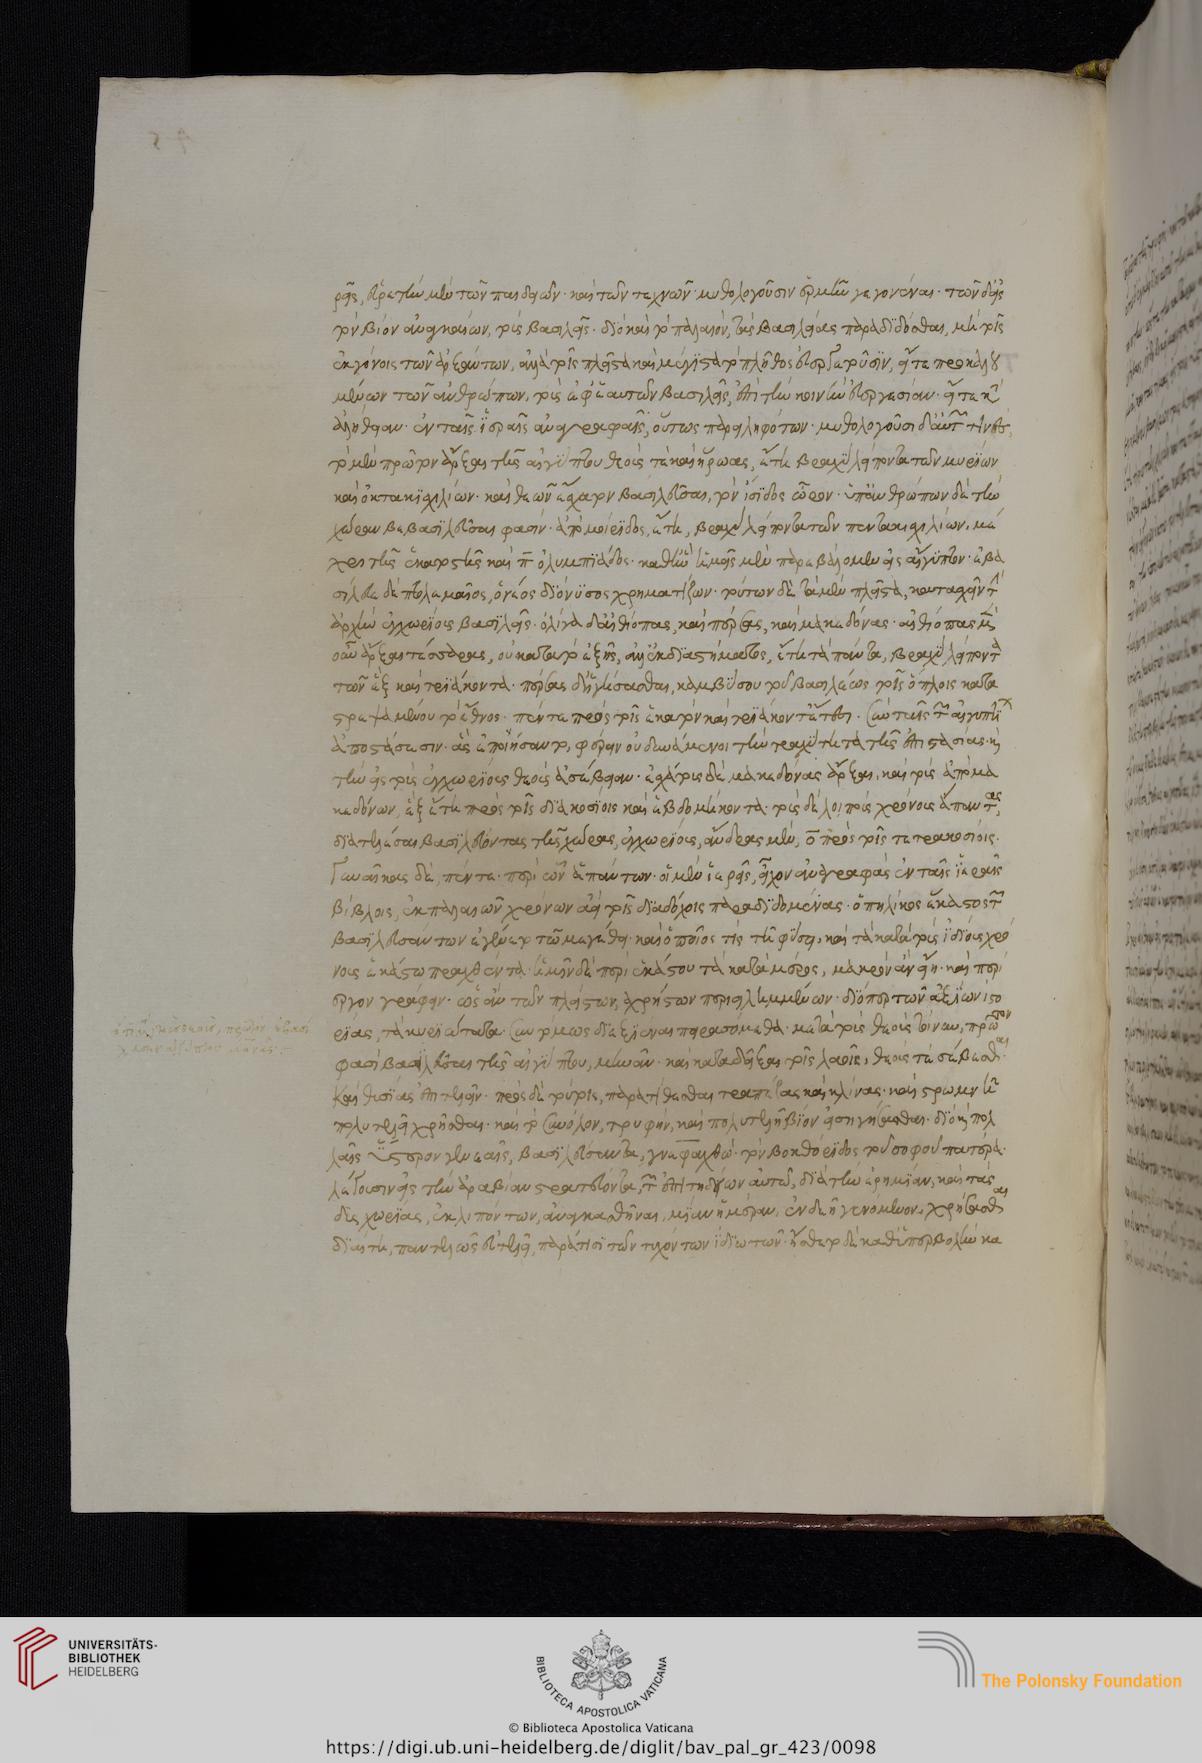 ρας, εὑρετὴν μὲν τῶν παιδειῶν· καὶ τῶν τεχνῶν· μυθολογοῦσιν ἑρμῆν γεγονέναι· τῶν δ' εἰς
τὸν βίον ἀναγκαίων, τοὺς βασιλεῖς· διὸ καὶ τὸ παλαιὸν, τὰς βασιλείας παραδίδοσθαι, μὴ τοῖς
ἐκγόνοις τῶν ἀρξάντων, ἀλλὰ τοῖς πλεῖστα καὶ μέγιστα τὸ πλῆθος εὐεργετοῦσιν, εἴτε προκαλου
μένων τῶν ἀνθρώπων, τοὺς ἐφ' ἑαυτῶν βασιλεῖς, ἐπὶ τὴν κοινὴν εὐεργεσίαν· εἴτε κατ'
ἀλήθειαν· ἐν ταῖς ἱεραῖς ἀναγραφαῖς, οὕτως παρειληφότων· μυθολογοῦσι δ' αὐτῶν τινὲς,
τὸ μὲν πρῶτον ἄρξαι τῆς αἰγύπτου θεούς τε καὶ ἥρωας, ἔτη βραχὺ λείποντα τῶν μυρίων
καὶ ὀκτακισχιλίων· καὶ θεῶν ἔσχατον βασιλεῦσαι, τὸν ἴσιδος ὧρον· ὑπ' ἀνθρώπων δὲ τὴν
χώραν βεβασιλεῦσθαι φασίν· ἀπὸ μοίριδος, ἔτη, βραχὺ λείποντα τῶν πεντακισχιλίων, μέ
χρι τῆς ἑκατοστῆς καὶ π̅ ὀλυμπιάδος· καθ' ἣν ἡμεῖς μὲν παρεβάλομεν εἰς αἴγυπτον· ἐβα
σίλευε δὲ πτολεμαῖος, ὁ νέος διόνυσος χρηματίζων· τούτων δὲ τὰ μὲν πλεῖστα, κατασχεῖν τὴν
ἀρχὴν ἐγχωρίους βασιλεῖς· ὀλίγα δὲ αἰθίοπας, καὶ πέρσας, καὶ μακεδόνας· αἰθίοπας μὲν
οὖν ἄρξαι τέσσαρας, οὐ κατὰ τὸ ἑξῆς, ἀλλ' ἐκ διαστήματος, ἔτη τὰ πάντα, βραχὺ λείποντα
τῶν ἓξ καὶ τριάκοντα· πέρσας δ' ἡγήσασθαι, καμβύσου τοῦ βασιλέως τοῖς ὅπλοις κατα
στρεψαμένου τὸ ἔθνος· πέντε πρὸς τοῖς ἑκατὸν καὶ τριάκοντ' ἔτεσι· σὺν ταῖς τῶν αἰγυπτίων
ἀποστάσεσιν· ἃς ἐποιήσαντο, φέρειν οὐ δυνάμενοι τὴν τραχύτητα τῆς ἐπιστασίας· καὶ
τὴν εἰς τοὺς ἐγχωρίους θεοὺς ἀσέβειαν· ἐσχάτους δὲ μακεδόνας ἄρξαι, καὶ τοὺς ἀπὸ μα
κεδόνων, ἓξ ἔτη πρὸς τοῖς διακοσίοις καὶ ἑβδομήκοντα· τοὺς δὲ λοιποὺς χρόνους ἅπαντας,
διατελέσαι βασιλεύοντας τῆς χώρας, ἐγχωρίους, ἄνδρας μὲν, ο̅ πρὸς τοῖς τετρακοσίοις·
γυναῖκας δὲ, πέντε· περὶ ὧν ἁπάντων· οἱ μὲν ἱερεῖς, εἶχον ἀναγραφὰς ἐν ταῖς ἱεραῖς
βίβλοις, ἐκ παλαιῶν χρόνων ἀεὶ τοῖς διαδόχοις παραδιδομένας· ὁπηλίκος ἕκαστος τῶν
βασιλευσάντων ἐγένετο τῷ μεγέθει· καὶ ὁποῖος τίς τῇ φύσει, καὶ τὰ κατὰ τοὺς ἰδίους χρό
νους ἑκάστῳ πραχθέντα· ἡμῖν δὲ περὶ ἑκάστου τὰ κατὰ μέρος, μακρὸν ἂν εἴη· καὶ περί
εργον γράφειν· ὡς ἂν τῶν πλείστων, ἀχρήστων περιειλημμένων· διόπερ τῶν ἀξίων ἱστο
ρίας, τὰ κυριώτατα· συντόμως διεξιέναι πειρασόμεθα· μετὰ τοὺς θεοὺς τοίνυν, πρῶτον
φασὶ βασιλεῦσαι τῆς αἰγύπτου, μηνᾶν· καὶ καταδεῖξαι τοῖς λαοῖς, θεούς τε σέβεσθαι·
καὶ θυσίας ἐπιτελεῖν· πρὸς δὲ τούτοις, παρατίθεσθαι τραπέζας καὶ κλίνας· καὶ στρωμνῇ
πολυτελεῖ χρῆσθαι· καὶ τὸ σύνολον, τρυφὴν, καὶ πολυτελῆ βίον εἰσηγήσασθαι· διὸ καὶ πολ
λαῖς ὕστερον γενεαῖς, βασιλεύσαντα, γνεφαχθώ· τὸν βοκχόριδος τοῦ σοφοῦ πατέρα·
λέγουσιν εἰς τὴν ἀραβίαν στρατεύοντα, τῶν ἐπιτηδείων αὐτὸν, διά τε τὴν ἐρημίαν, καὶ τὰς
δυσχωρίας, ἐκλιπόντων, ἀναγκασθῆναι, μίαν ἡμέραν, ἐνδεῆ γενόμενον, χρήσασθαι
διαίτῃ, παντελῶς εὐτελεῖ, παρά τισι τῶν τυχόντων ἰδιωτῶν· ἡσθέντα δὲ καθ' ὑπερβολὴν κα
UNIVERSITÄTS-
BIBLIOTHEK
HEIDELBERG
BIBLIOTECA APOSTOLICA VATICANA
The Polonsky Foundation
© Biblioteca Apostolica Vaticana
https://digi.ub.uni-heidelberg.de/diglit/bav_pal_gr_423/0098